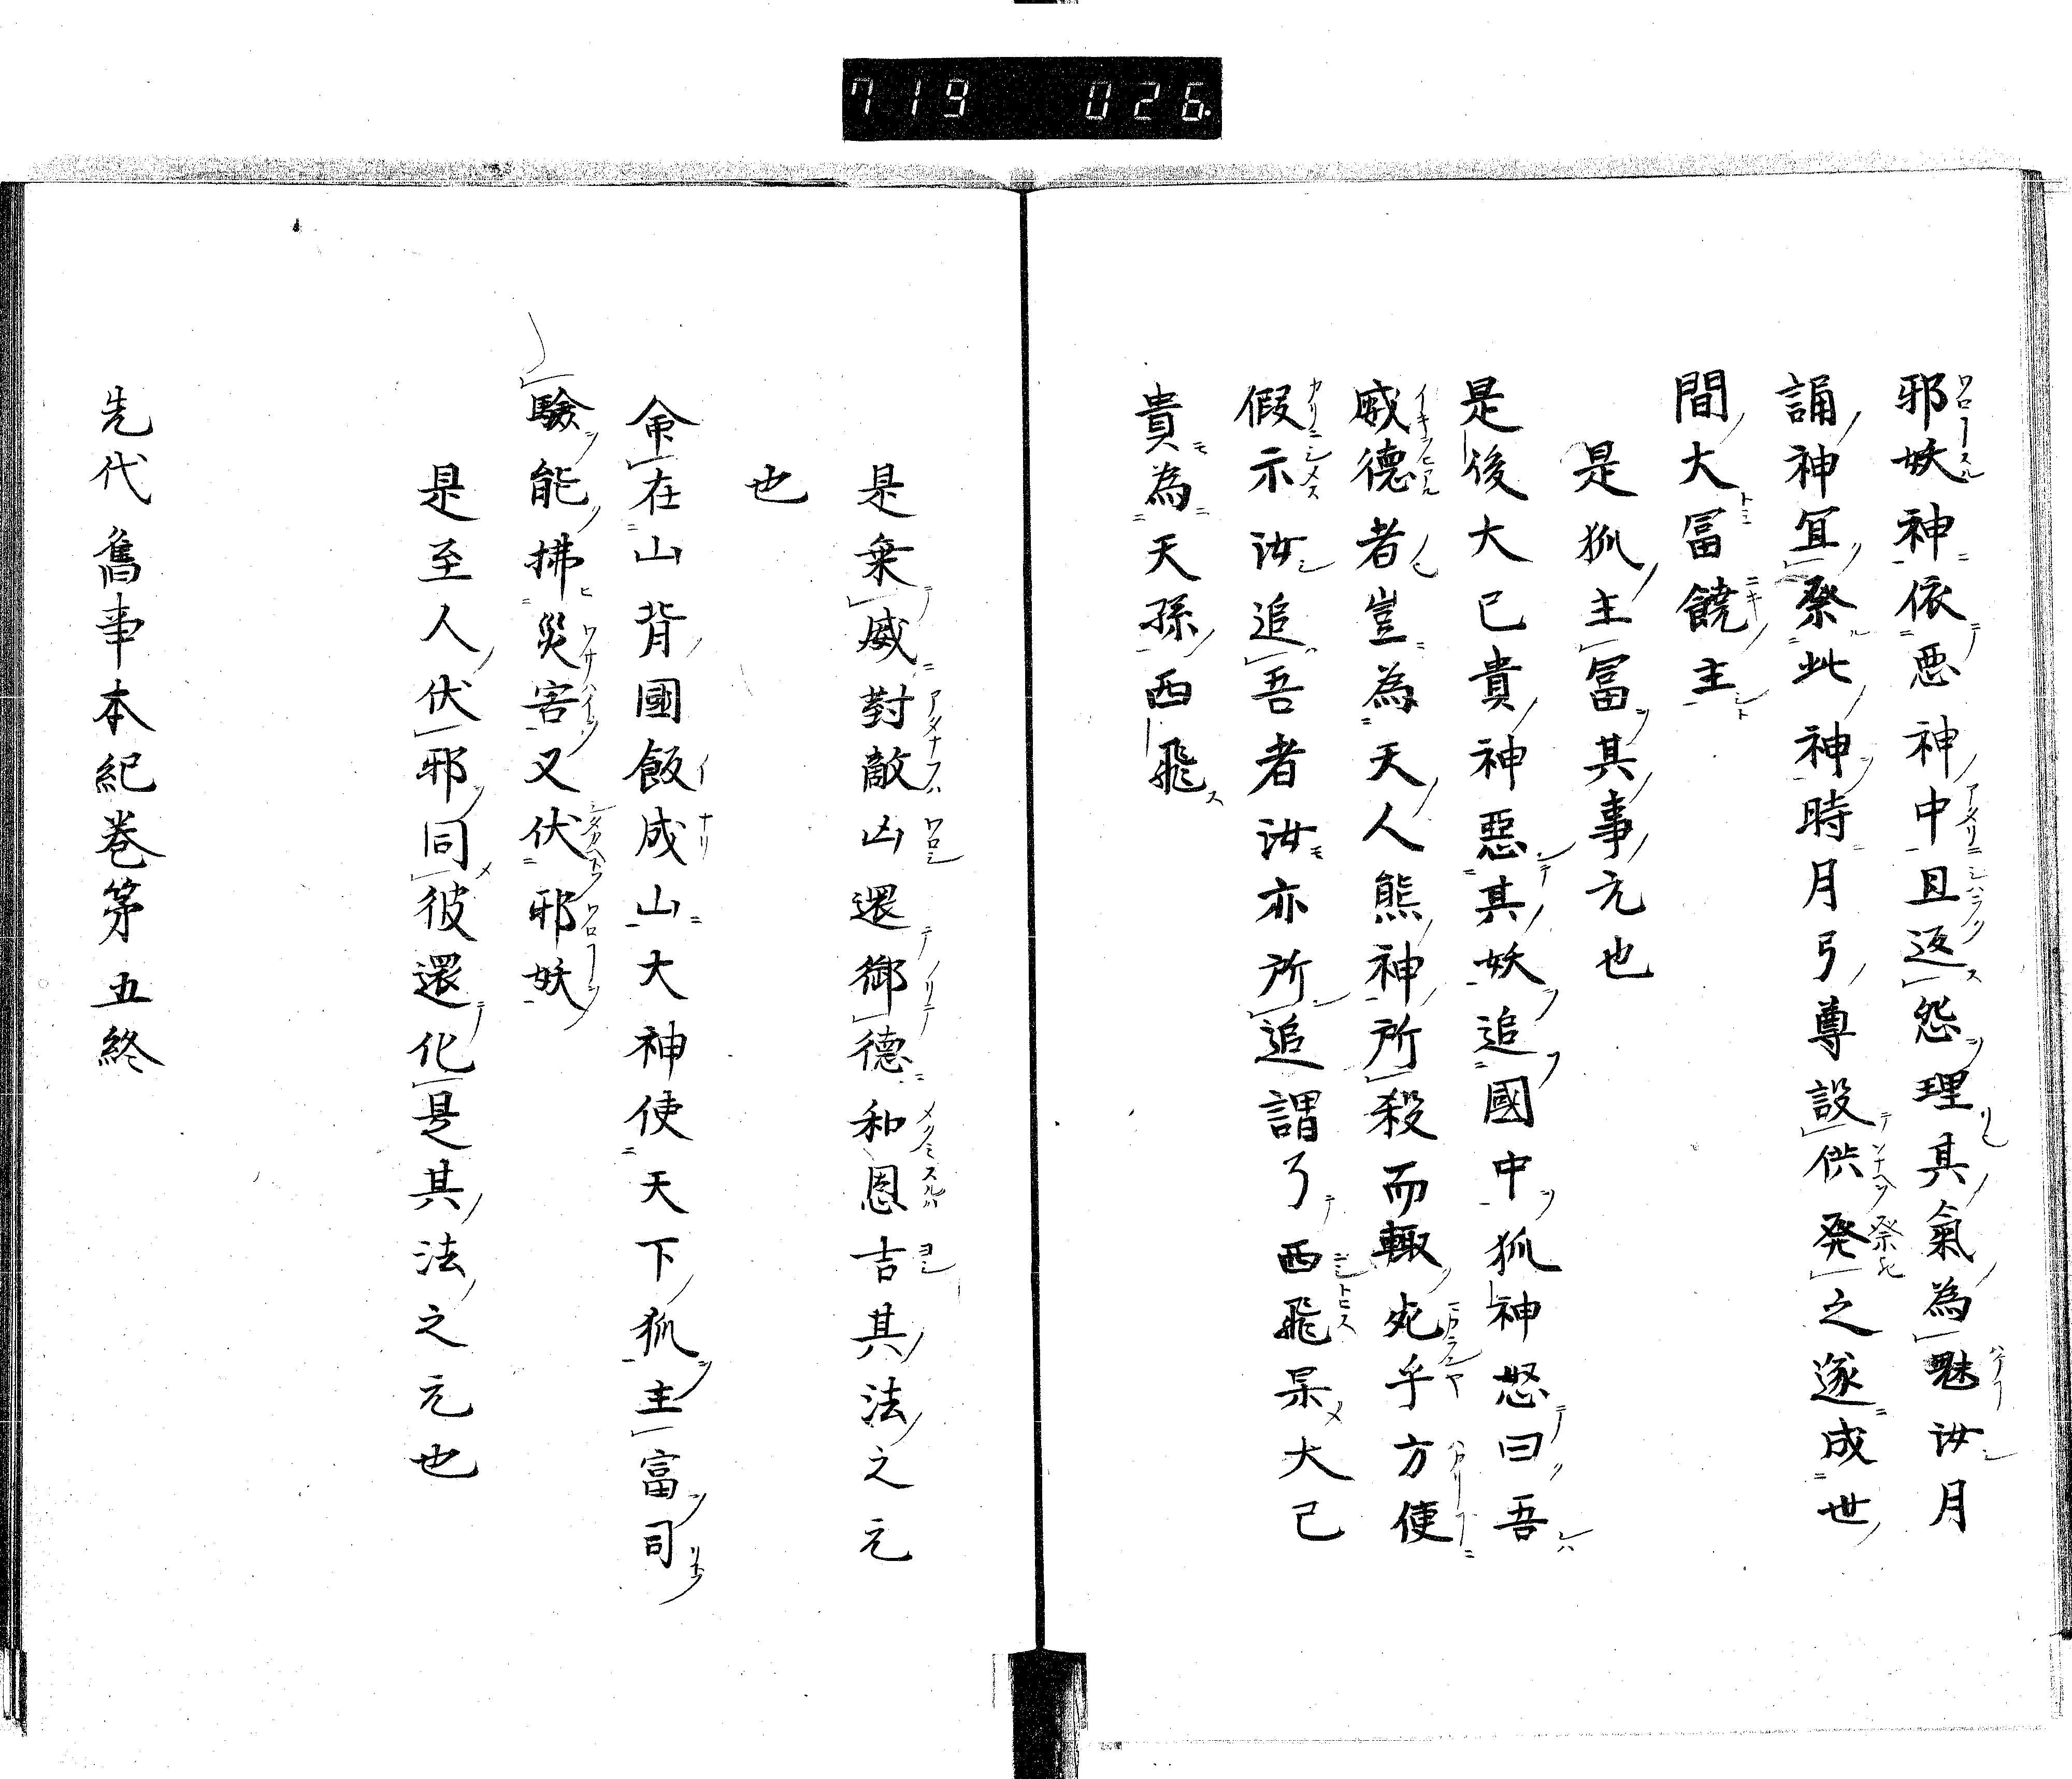 719 026
邪妖神依悪神中且返怨理其氣為魅汝月
誦神冝祭此神時月弓尊設供発之遂成世
間大冨饒主
是狐主冨其事元也
是後大已貴神惡其妖追國中狐神怒曰吾
威德者豈為天人熊神所殺而輙死乎方便
假示汝追吾者汝亦所追謂了西飛杲大己
貴為天孫西飛
是棄威對敵凶還御德和恩吉其法之元
也
命在山背國飯成山大神使天下狐主富司
驗能拂災害又伏邪妖
是至人伏邪同彼還化是其法之元也
先代舊事本紀巻第五終